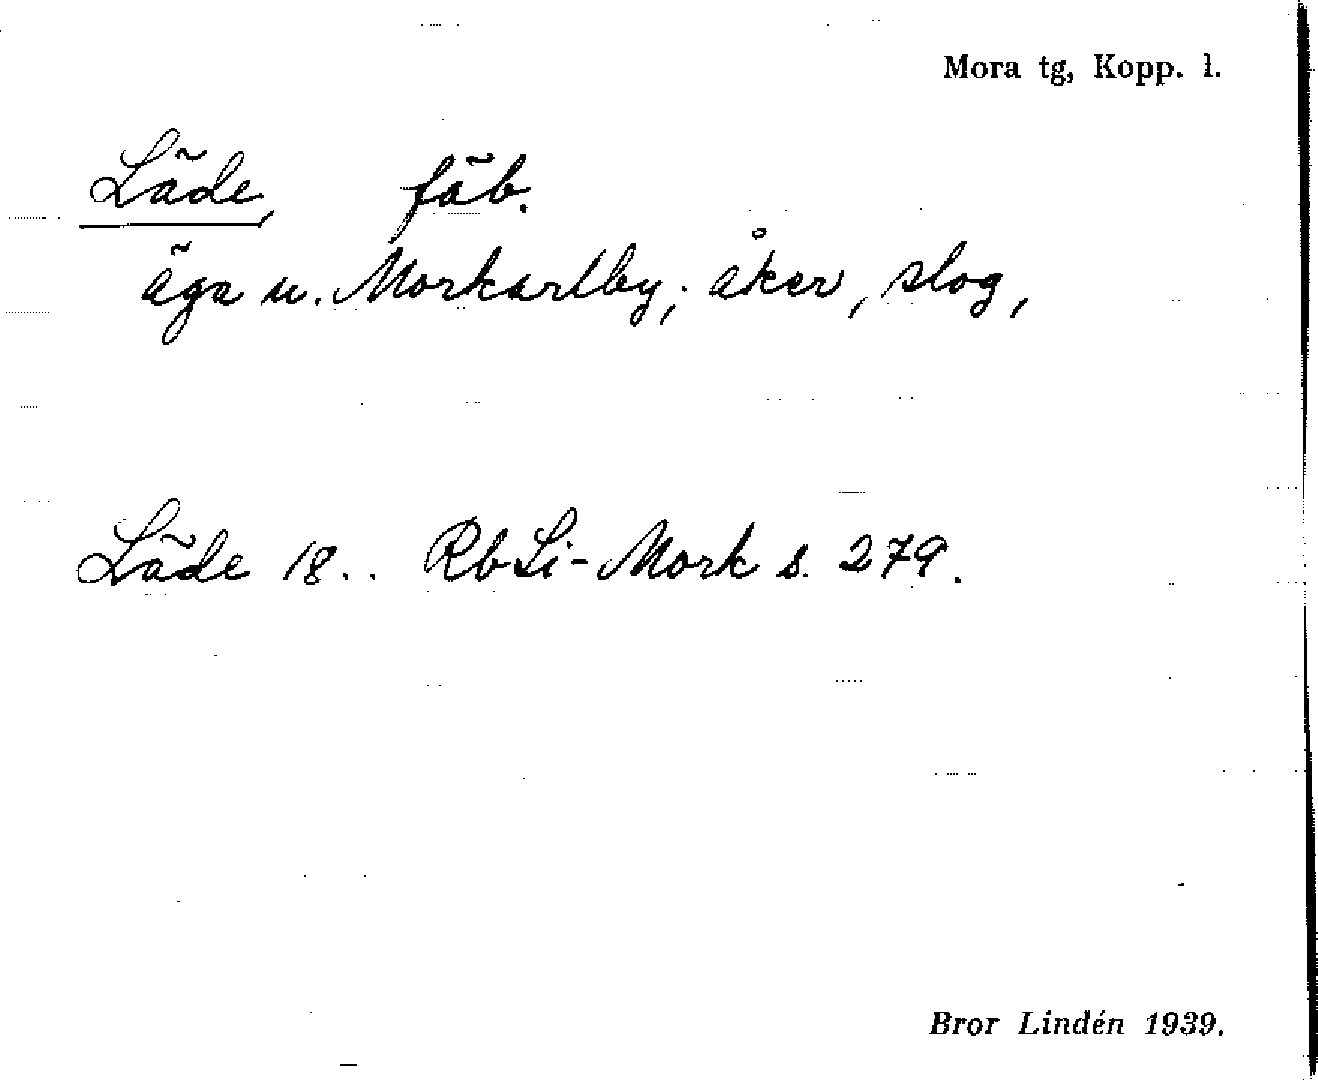 Mora tg, Kopp. l.
Läde, fäb.
äga u. Morkarlby; åker, slog,
Läde 18.. Rb Li-Mork s. 279.
Bror Lindén 1939.